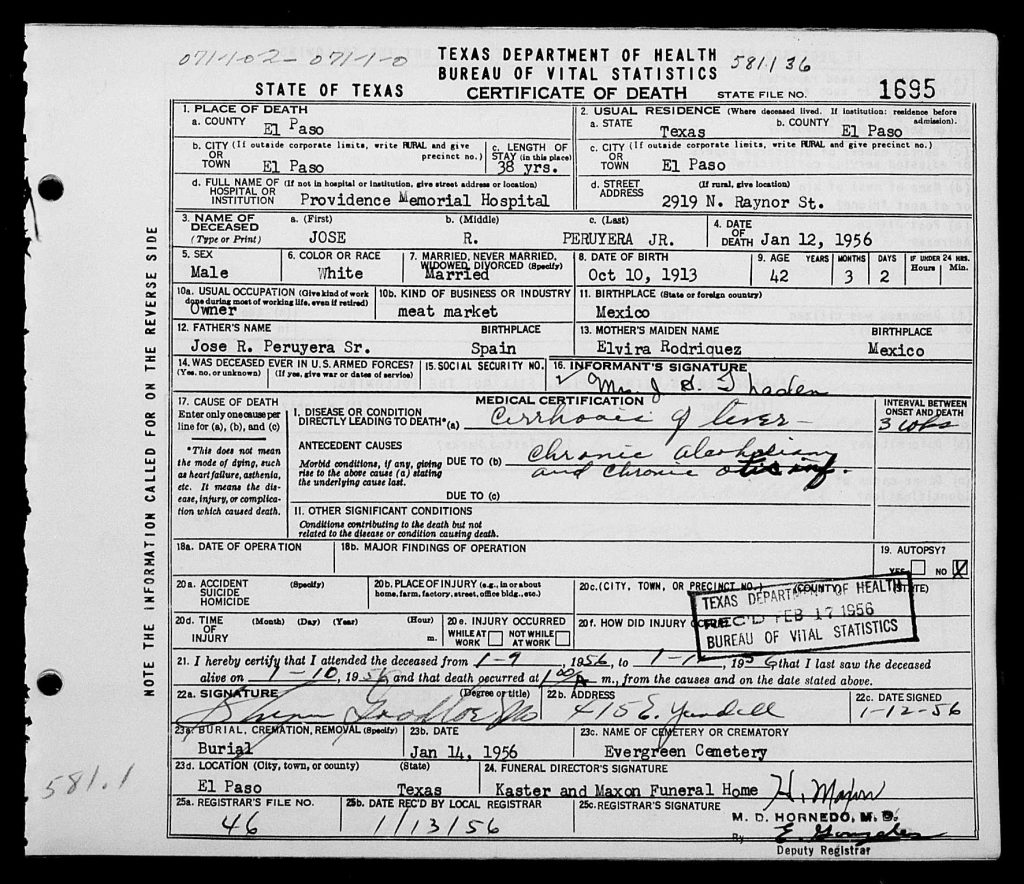 071-1-02- 071-1-0
TEXAS DEPARTMENT OF HEALTH
BUREAU OF VITAL STATISTICS
581.1 36
STATE OF TEXAS
CERTIFICATE OF DEATH
STATE FILE NO. 1695
1. PLACE OF DEATH
a. COUNTY
El Paso
2. USUAL RESIDENCE (Where deceased lived. If institution: residence before admission).
a. STATE
Texas
b. COUNTY
El Paso
b. CITY (If outside corporate limits, write RURAL and give precinct no.)
OR
TOWN
El Paso
c. LENGTH OF
STAY (in this place)
38 yrs.
c. CITY (If outside corporate limits, write RURAL and give precinct no.)
OR
TOWN
El Paso
d. FULL NAME OF (If not in hospital or institution, give street address or location)
HOSPITAL OR
INSTITUTION
Providence Memorial Hospital
d. STREET
ADDRESS
(If rural, give location)
2919 N. Raynor St.
3. NAME OF
DECEASED
(Type or Print)
a. (First)
JOSE
b. (Middle)
R.
c. (Last)
PERUYERA JR.
4. DATE
OF
DEATH Jan 12, 1956
5. SEX
Male
6. COLOR OR RACE
White
7. MARRIED, NEVER MARRIED,
WIDOWED, DIVORCED (Specify)
Married
8. DATE OF BIRTH
Oct 10, 1913
9. AGE YEARS MONTHS DAYS
42 3 2
IF UNDER 24 HRS.
Hours Min.
10a. USUAL OCCUPATION (Give kind of work
done during most of working life, even if retired)
Owner
10b. KIND OF BUSINESS OR INDUSTRY
meat market
11. BIRTHPLACE (State or foreign country)
Mexico
12. FATHER'S NAME BIRTHPLACE
Jose R. Peruyera Sr. Spain
13. MOTHER'S MAIDEN NAME BIRTHPLACE
Elvira Rodriquez Mexico
14. WAS DECEASED EVER IN U.S. ARMED FORCES?
(Yes, no, or unknown) (If yes, give war or dates of service)
15. SOCIAL SECURITY NO.
16. INFORMANT'S SIGNATURE
Mrs J. S. Thaden
17. CAUSE OF DEATH
Enter only one cause per
line for (a), (b), and (c)
*This does not mean
the mode of dying, such
as heart failure, asthenia,
etc. It means the dis-
ease, injury, or complica-
tion which caused death.
MEDICAL CERTIFICATION
I. DISEASE OR CONDITION
DIRECTLY LEADING TO DEATH*(a)
Cirrhosis of liver
INTERVAL BETWEEN
ONSET AND DEATH
3 wks
ANTECEDENT CAUSES
Morbid conditions, if any, giving
rise to the above cause (a) stating
the underlying cause last.
DUE TO (b)
Chronic alcoholism
and chronic
DUE TO (c)
II. OTHER SIGNIFICANT CONDITIONS
Conditions contributing to the death but not
related to the disease or condition causing death.
18a. DATE OF OPERATION
18b. MAJOR FINDINGS OF OPERATION
19. AUTOPSY?
YES NO X
20a. ACCIDENT
SUICIDE
HOMICIDE
(Specify)
20b. PLACE OF INJURY (e.g., in or about
home, farm, factory, street, office bldg., etc.)
20c. (CITY, TOWN, OR PRECINCT NO.) (COUNTY) (STATE)
20d. TIME
OF
INJURY
(Month) (Day) (Year) (Hour)
m.
20e. INJURY OCCURRED
WHILE AT
WORK
NOT WHILE
AT WORK
20f. HOW DID INJURY OCCUR?
TEXAS DEPARTMENT OF HEALTH
REC'D FEB 17 1956
BUREAU OF VITAL STATISTICS
21. I hereby certify that I attended the deceased from 1-9, 1956, to 1-1, 1956 that I last saw the deceased
alive on 1-10, 1956 and that death occurred at 1:00 A m., from the causes and on the date stated above.
22a. SIGNATURE (Degree or title)
22b. ADDRESS
415 E. Yandell
22c. DATE SIGNED
1-12-56
23a. BURIAL, CREMATION, REMOVAL (Specify)
Burial
23b. DATE
Jan 14, 1956
23c. NAME OF CEMETERY OR CREMATORY
Evergreen Cemetery
23d. LOCATION (City, town, or county) (State)
El Paso Texas
24. FUNERAL DIRECTOR'S SIGNATURE
Kaster and Maxon Funeral Home H. Maxon
25a. REGISTRAR'S FILE NO.
46
25b. DATE REC'D BY LOCAL REGISTRAR
1/13/56
25c. REGISTRAR'S SIGNATURE
M. D. HORNEDO, M. D.
By E. Gonzales
Deputy Registrar
NOTE THE INFORMATION CALLED FOR ON THE REVERSE SIDE
581.1